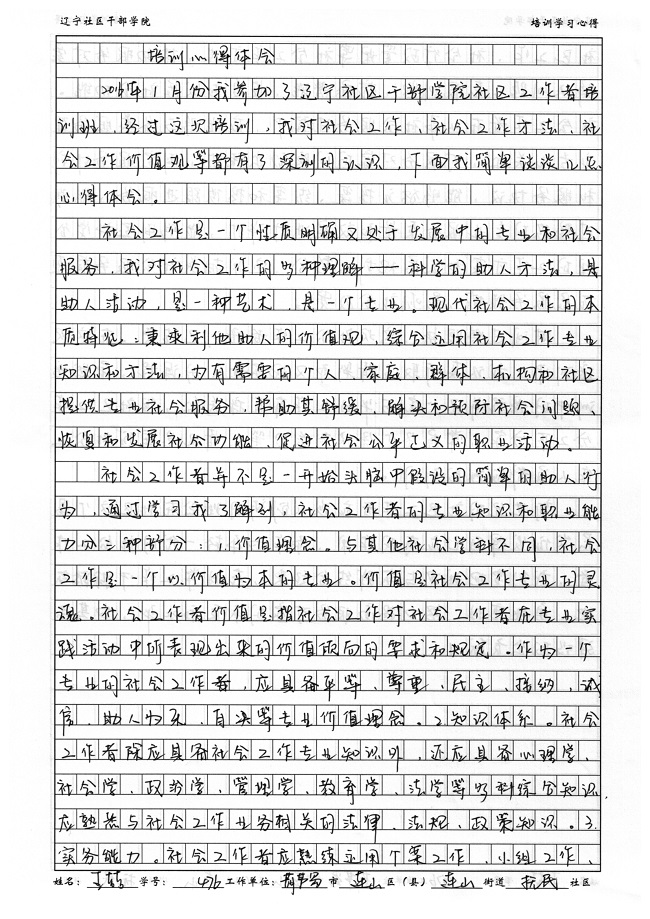 辽宁社区干部学院 培训学习心得
培训心得体会
2016年1月份我参加了辽宁社区干部学院社区工作者培
训班，经过这次培训，我对社会工作、社会工作方法、社
会工作价值观等都有了深刻的认识，下面我简单谈谈几点
心得体会。
社会工作是一个性质明确又处于发展中的专业和社会
服务，我对社会工作的多种理解——科学的助人方法，是
助人活动，是一种艺术，是一个专业。现代社会工作的本
质特征：秉承利他助人的价值观，综合运用社会工作专业
知识和方法，为有需要的个人、家庭、群体、机构和社区
提供专业社会服务，帮助其舒缓、解决和预防社会问题、
恢复和发展社会功能，促进社会公平正义的职业活动。
社会工作者并不是一开始头脑中假设的简单的助人行
为，通过学习我了解到，社会工作者的专业知识和职业能
力分三种部分：1.价值理念。与其他社会学科不同，社会
工作是一个以价值为本的专业。价值是社会工作专业的灵
魂。社会工作者价值是指社会工作对社会工作者在专业实
践活动中所表现出来的价值倾向的要求和规定。作为一个
专业的社会工作者，应具备平等、尊重、民主、接纳、诚
信、助人为乐、自决等专业价值理念。2.知识体系。社会
工作者除应具备社会工作专业知识外，还应具备心理学、
社会学、政治学、管理学、教育学、法学等多科综合知识
应熟悉与社会工作业务相关的法律、法规、政策知识。3.
实务能力。社会工作者应熟练运用个案工作、小组工作、
姓名： 学号：476 工作单位：葫芦岛 市 连山 区（县） 连山 街道 民 社区